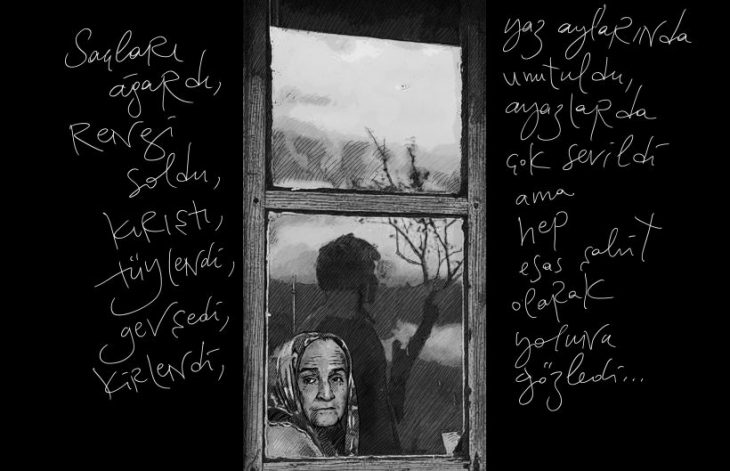 Saçları
ağardı,
Rengi
soldu,
kırıştı,
tüylendi,
gevşedi,
kirlendi,
yaz aylarında
unutuldu,
ayazlarda
çok sevildi
ama
hep
esas şahit
olarak
yolunu
gözledi...